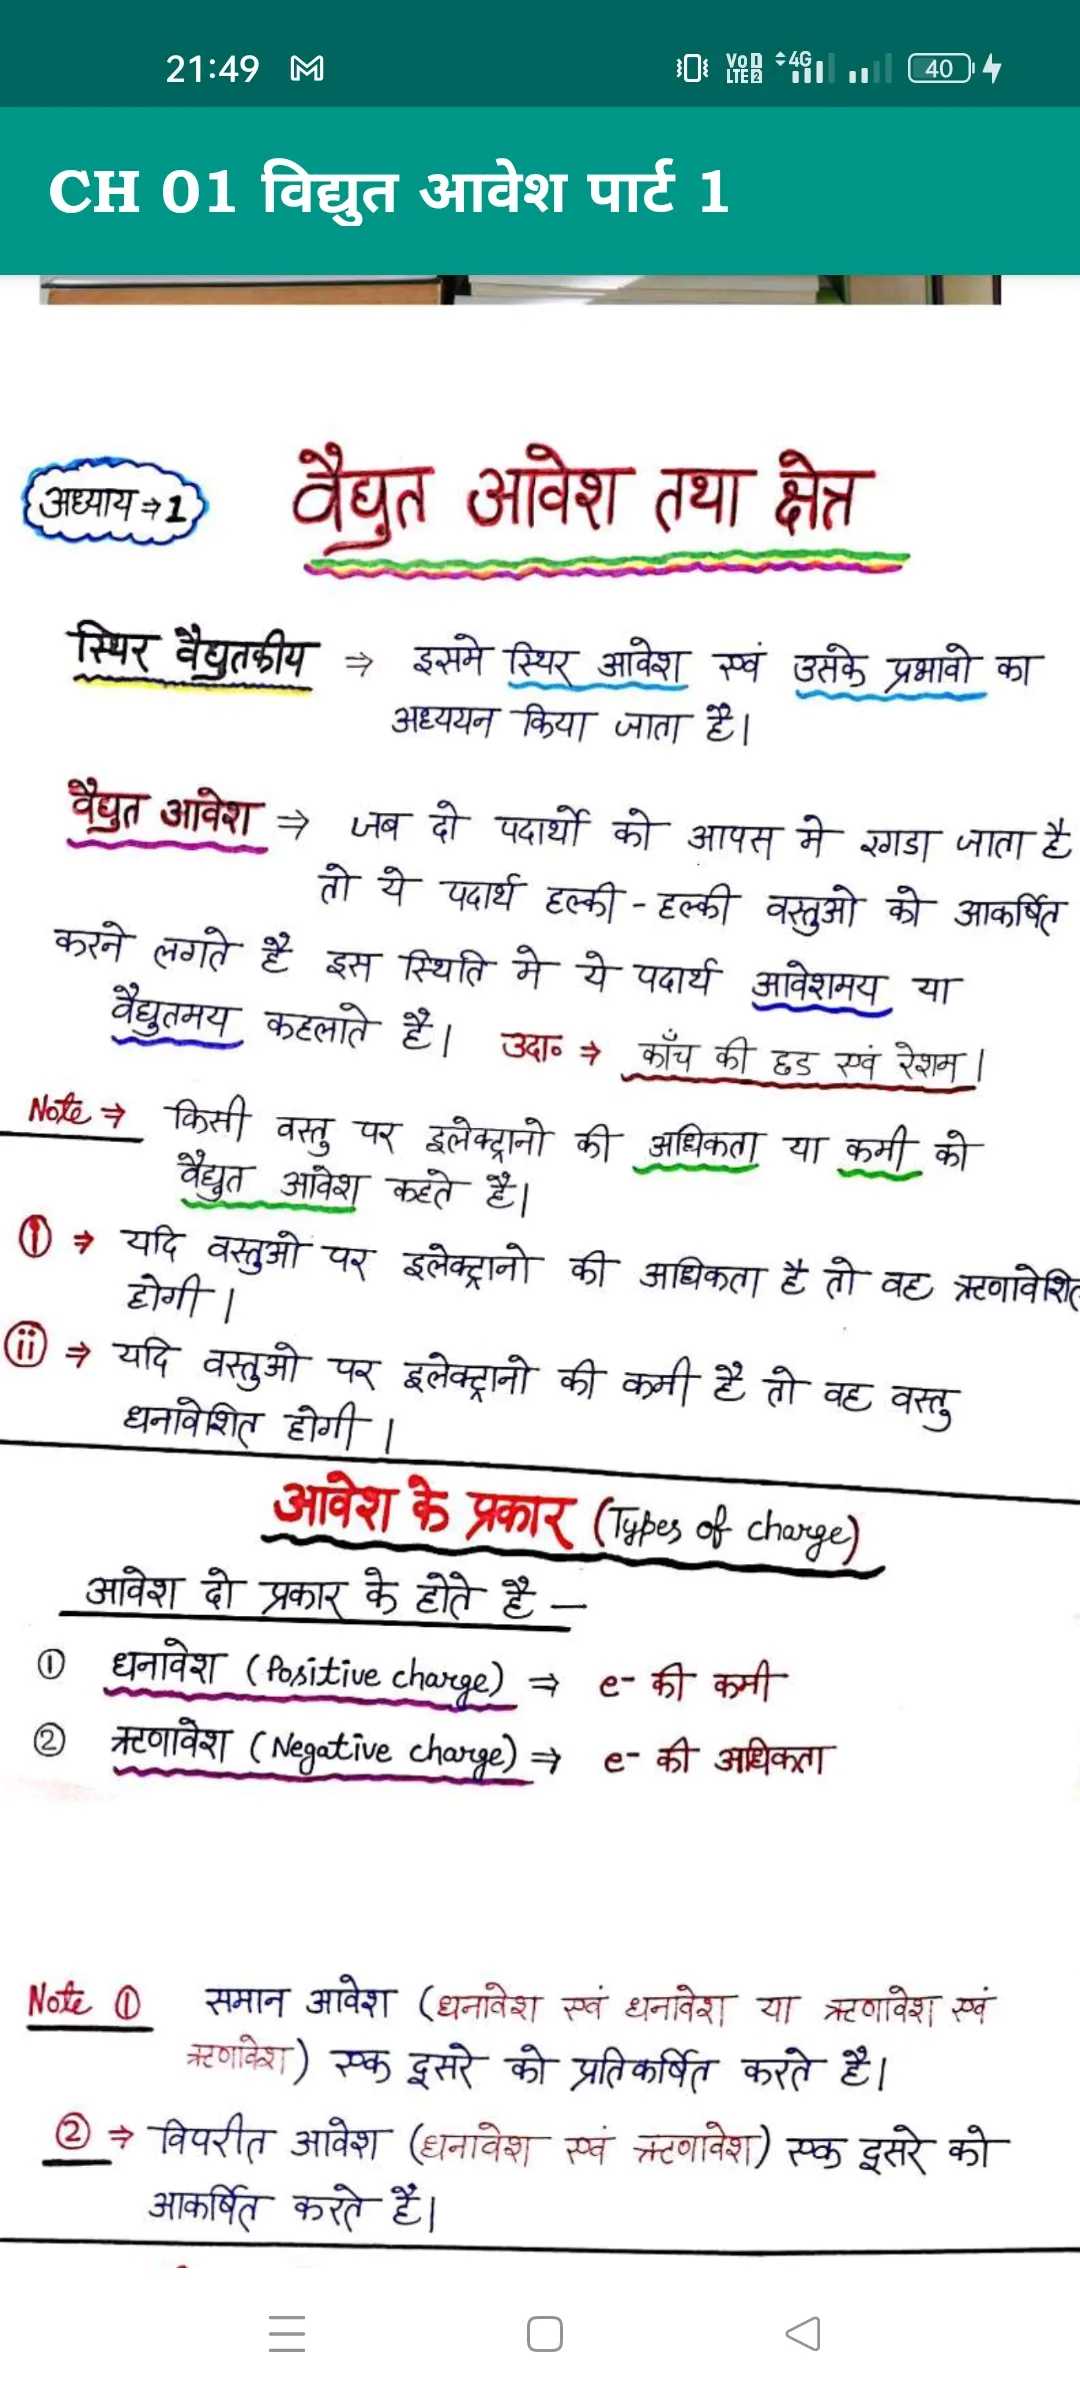 21:49
VoD LTE 2 4G 40
CH 01 विद्युत आवेश पार्ट 1
अध्याय ⇒ 1
वैद्युत आवेश तथा क्षेत्र
स्थिर वैद्युतकीय ⇒ इसमे स्थिर आवेश एवं उसके प्रभावो का
अध्ययन किया जाता है।
वैद्युत आवेश ⇒ जब दो पदार्थो को आपस मे रगडा जाता है
तो ये पदार्थ हल्की - हल्की वस्तुओ को आकर्षित
करने लगते है इस स्थिति मे ये पदार्थ आवेशमय या
वैद्युतमय कहलाते है। उदा॰ ⇒ काँच की छड एवं रेशम।
Note ⇒ किसी वस्तु पर इलेक्ट्रानो की अधिकता या कमी को
वैद्युत आवेश कहते है।
(i) ⇒ यदि वस्तुओ पर इलेक्ट्रानो की अधिकता है तो वह ऋणावेशित
होगी।
(ii) ⇒ यदि वस्तुओ पर इलेक्ट्रानो की कमी है तो वह वस्तु
धनावेशित होगी।
आवेश के प्रकार (Types of charge)
आवेश दो प्रकार के होते है —
① धनावेश (Positive charge) ⇒ e- की कमी
② ऋणावेश (Negative charge) ⇒ e- की अधिकता
Note ① समान आवेश (धनावेश एवं धनावेश या ऋणावेश एवं
ऋणावेश) एक दूसरे को प्रतिकर्षित करते है।
② ⇒ विपरीत आवेश (धनावेश एवं ऋणावेश) एक दूसरे को
आकर्षित करते है।